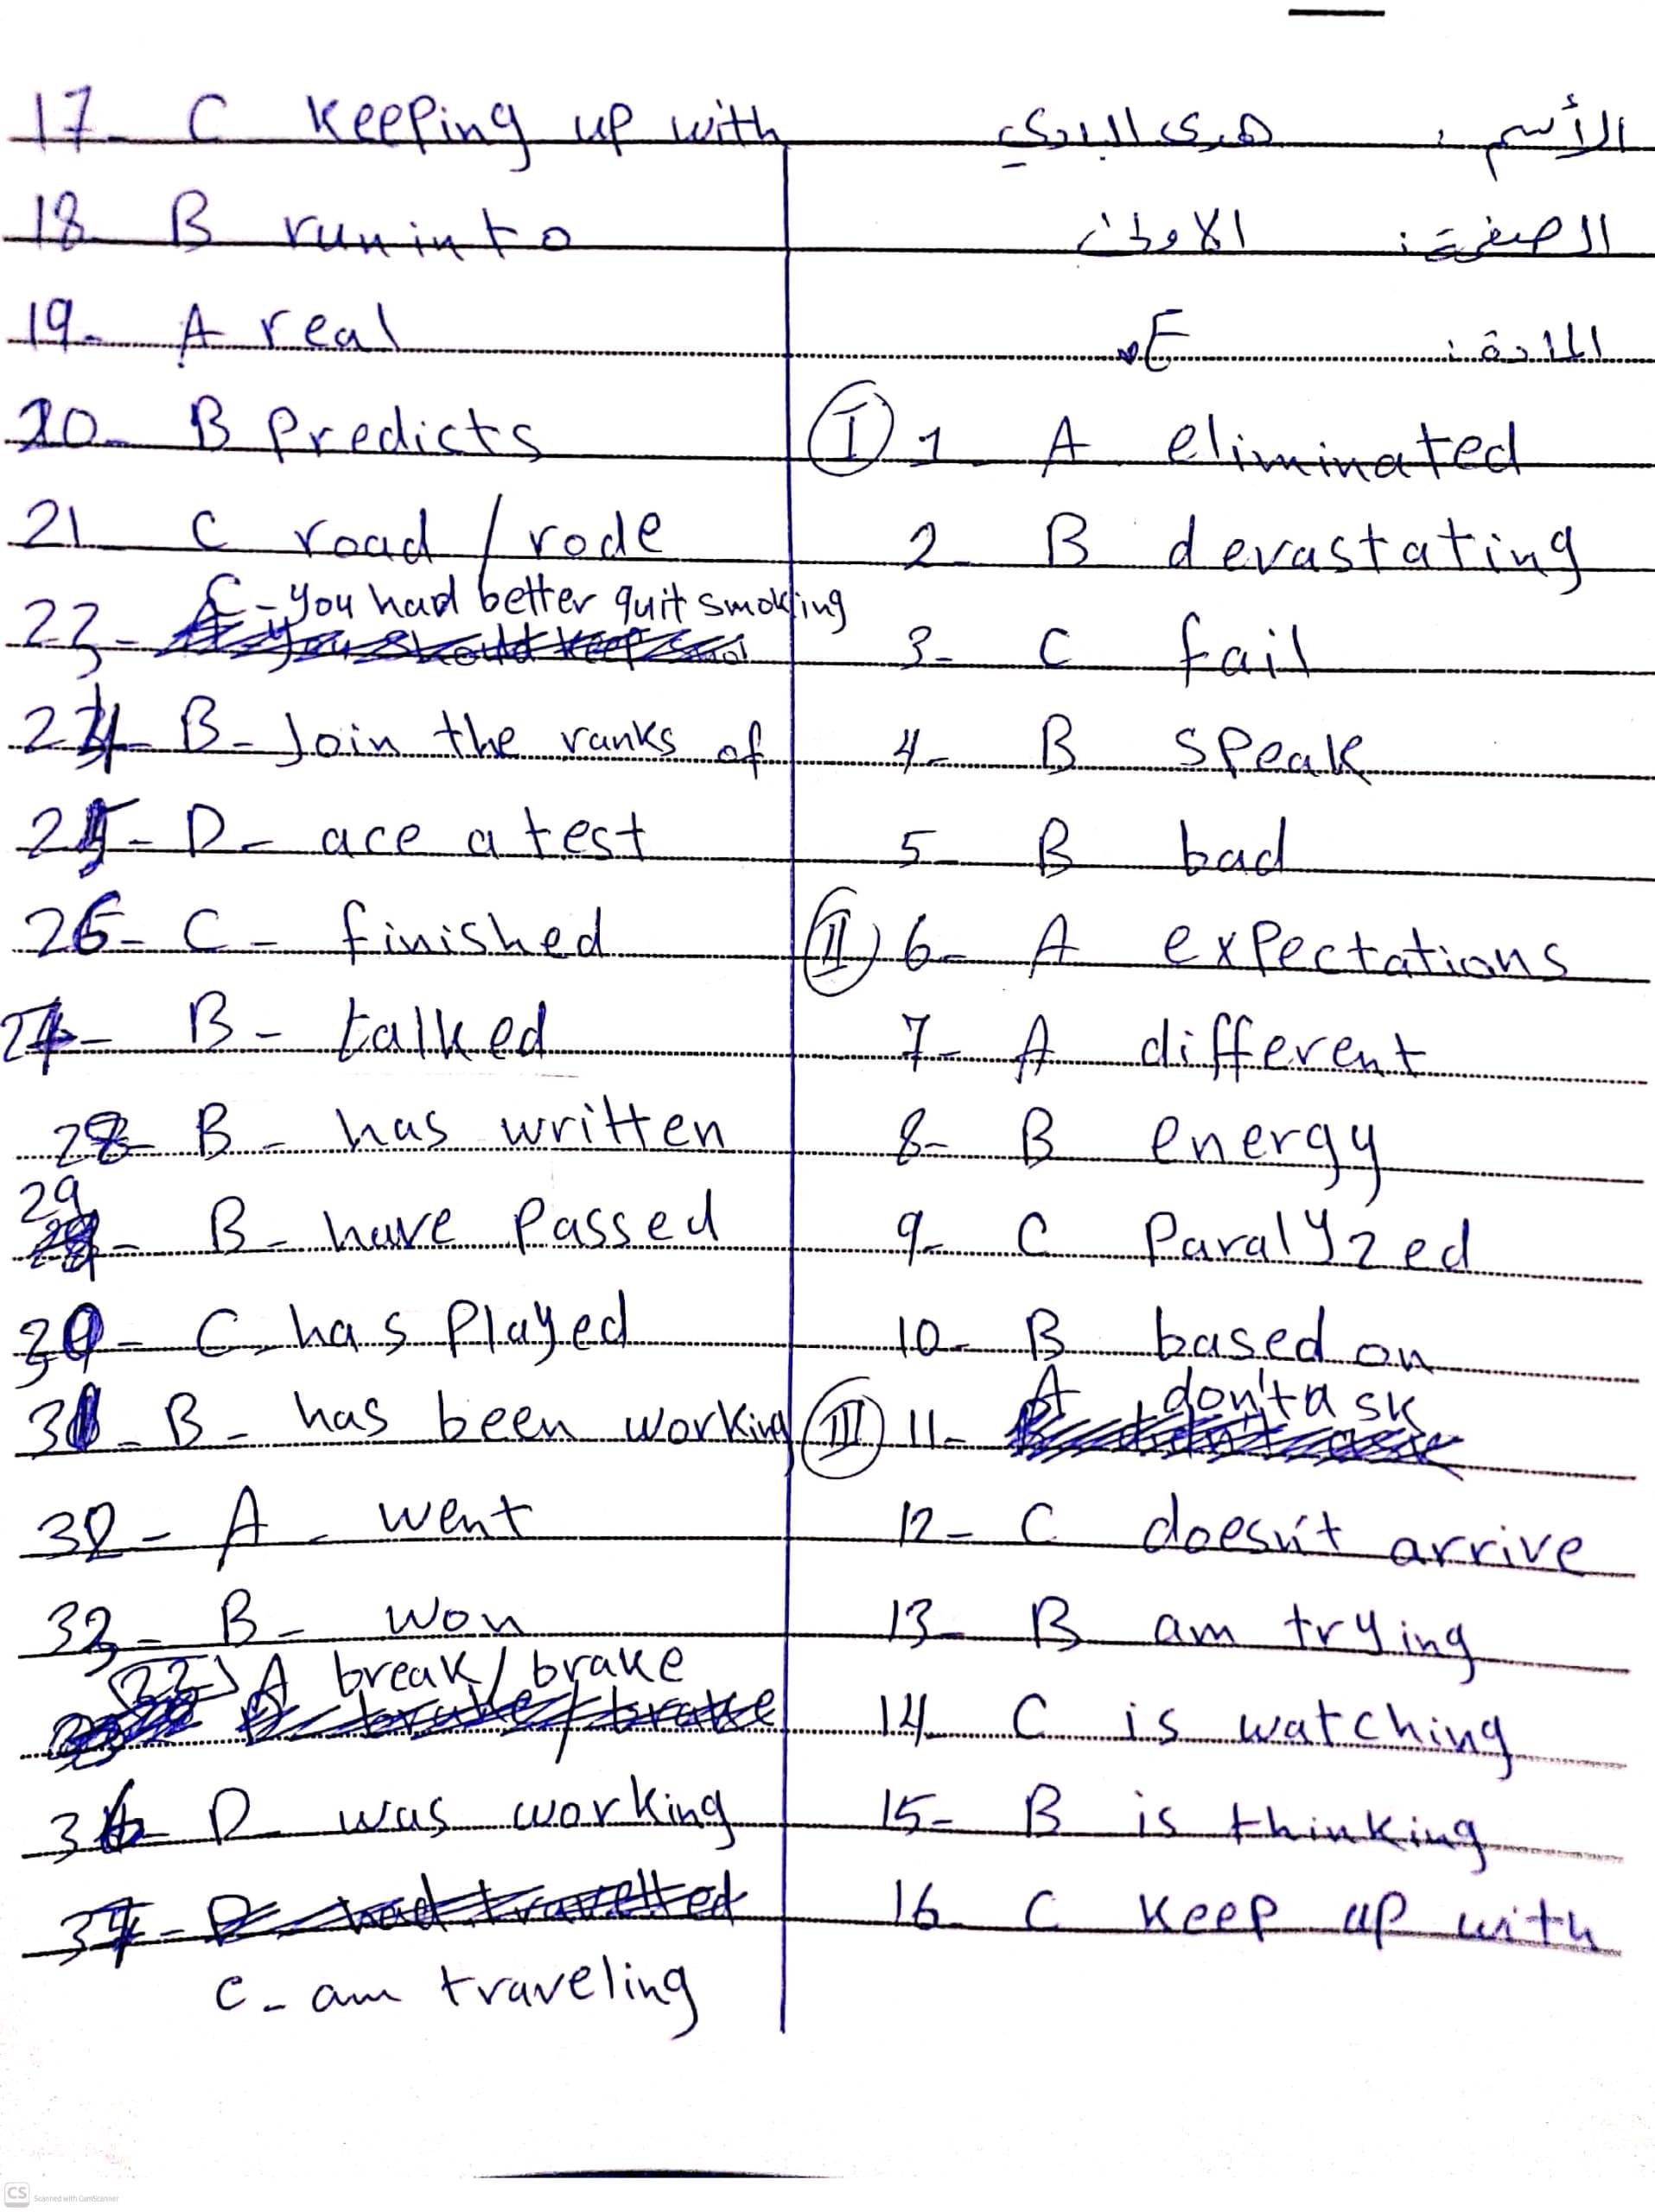 الأسم : هدى البدوي
الصفحة: الاولى
المادة: E
I 1- A eliminated
2- B devastating
3- C fail
4- B speak
5- B bad
II 6- A expectations
7- A different
8- B energy
9- C Paralyzed
10- B based on
III 11- A don't ask
12- C doesn't arrive
13- B am trying
14- C is watching
15- B is thinking
16- C Keep up with
17- C Keeping up with
18- B run into
19- A real
20- B Predicts
21- C road / rode
23- C - you had better quit smoking
24- B - Join the ranks of
25- D - ace a test
26- C - finished
27- B - talked
28- B - has written
29- B - have Passed
30- C - has Played
31- B - has been working
32- A - went
33- B - won
22) A break / brake
36- D - was working
37-
C - am traveling
CS Scanned with CamScanner